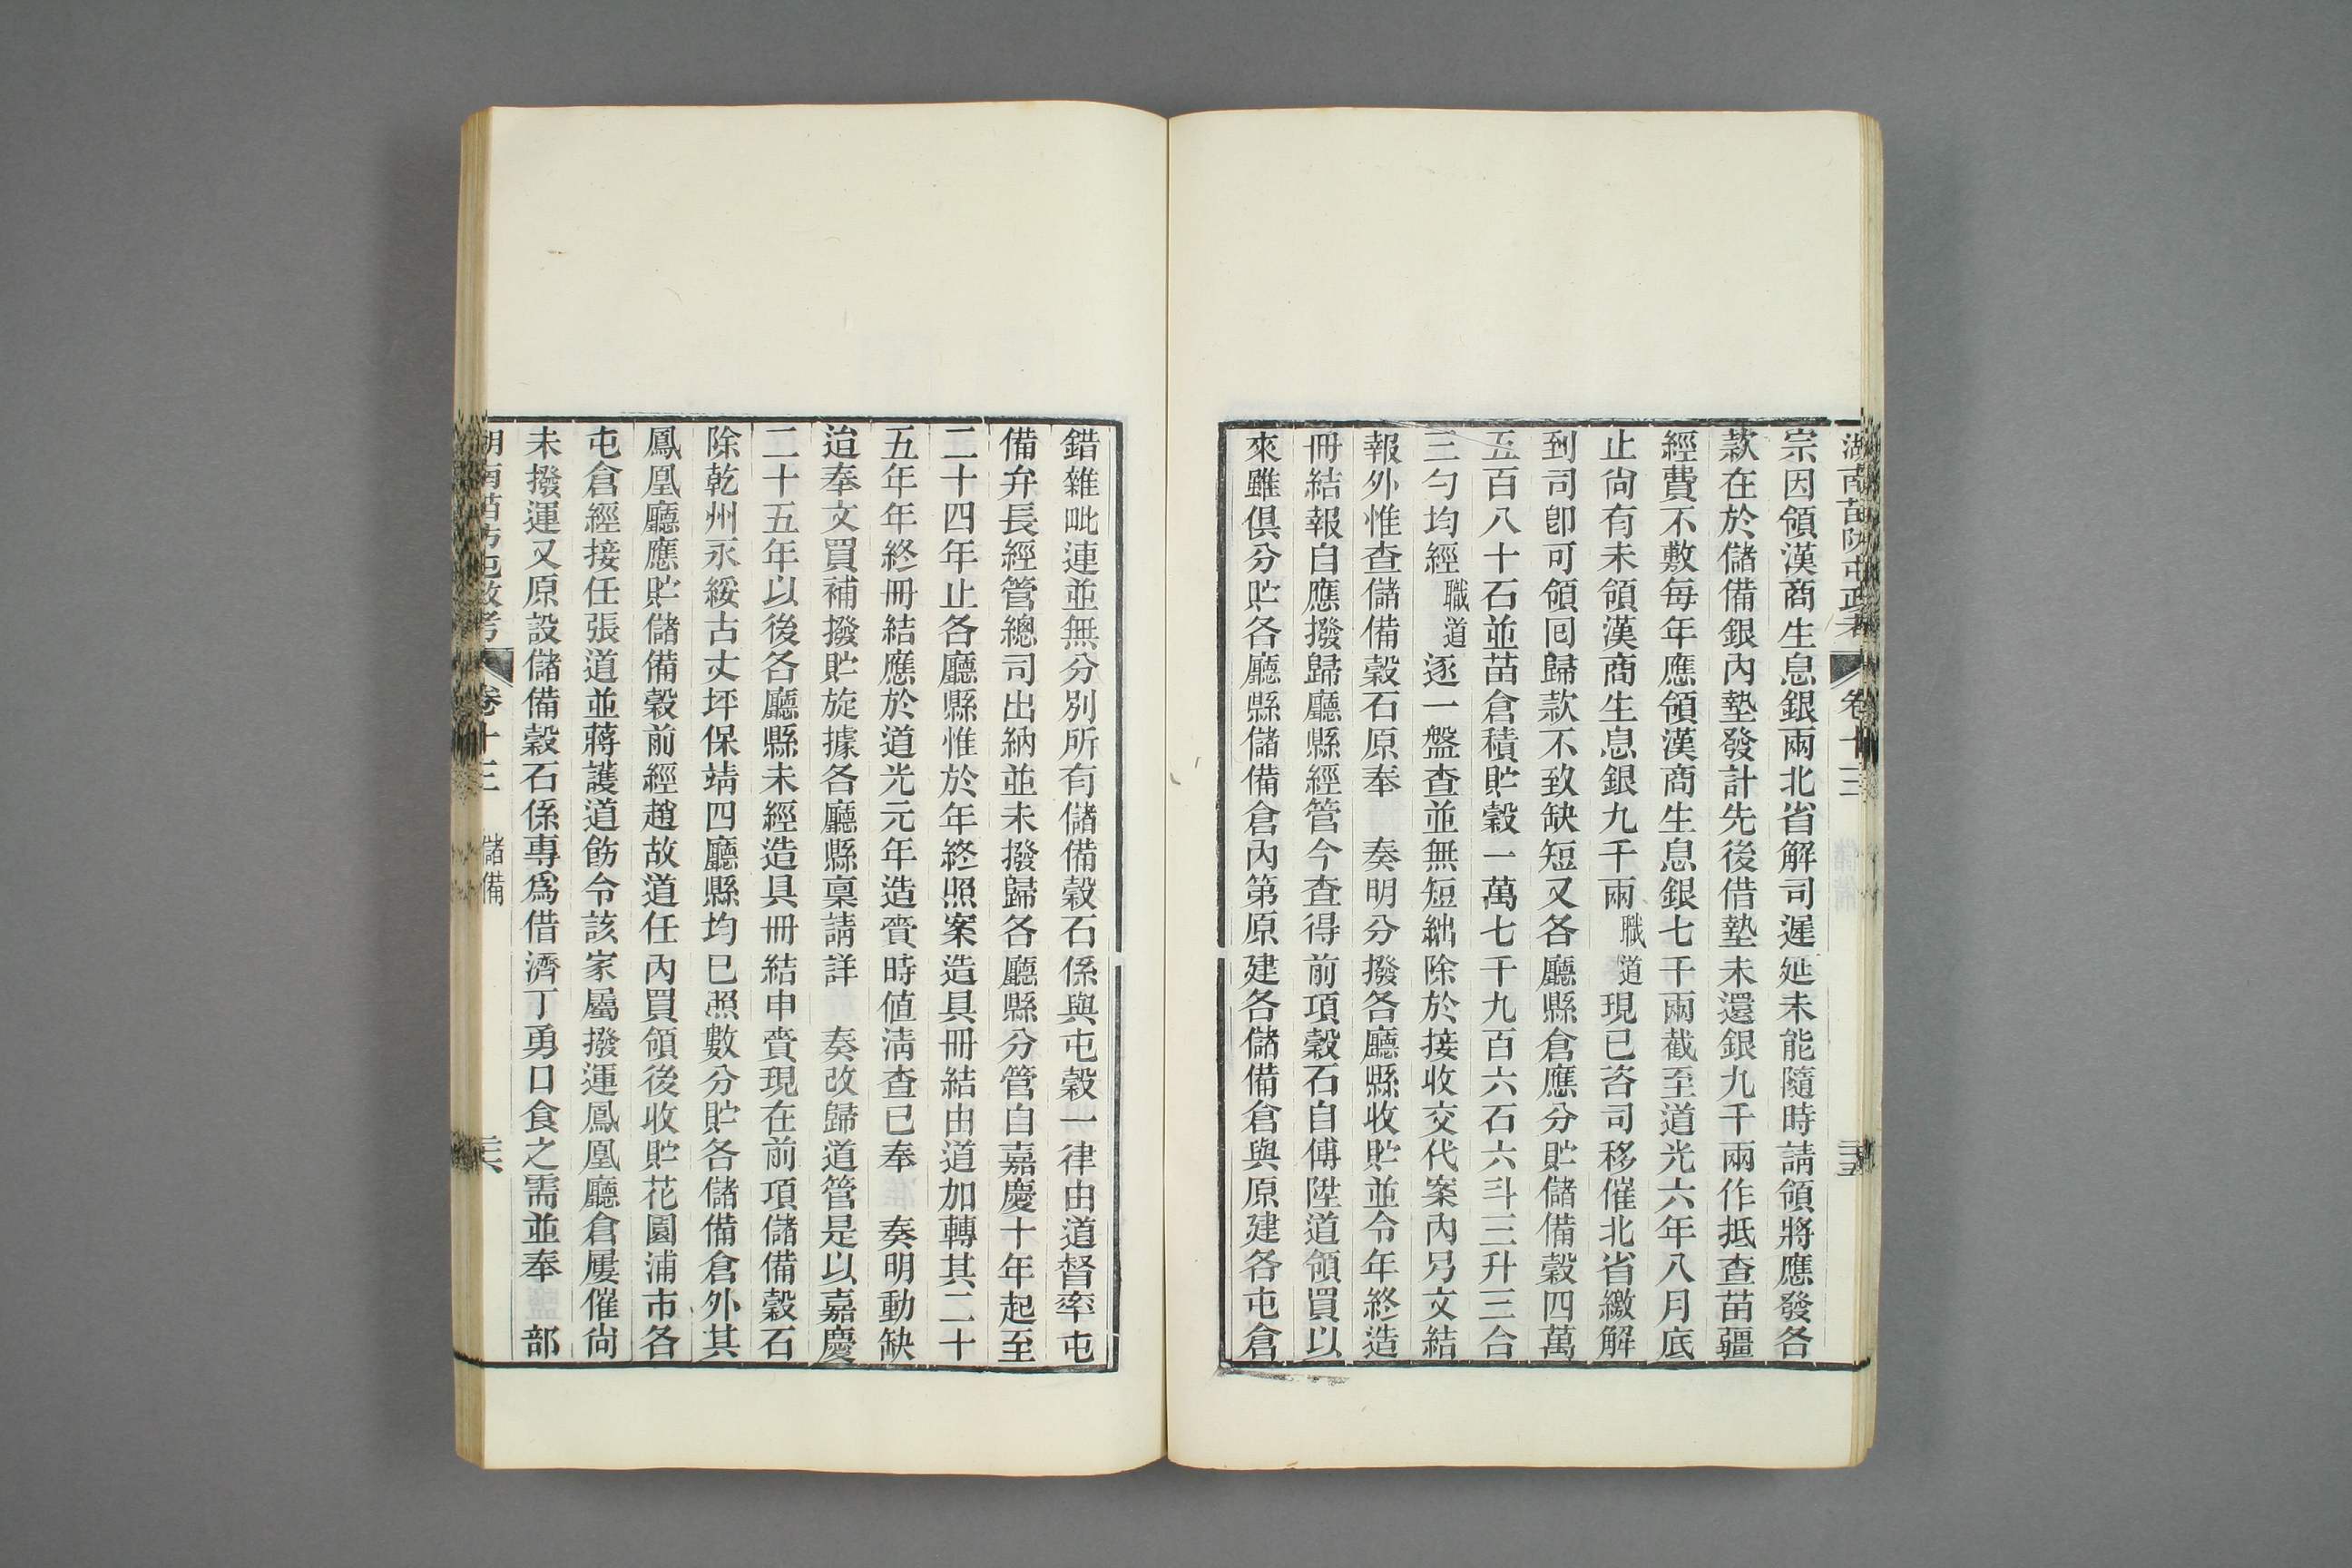 湖南苗防屯政考 卷十三 三五
宗因領漢商生息銀兩北省解司遲延未能隨時請領將應發各
款在於儲備銀內墊發計先後借墊未還銀九千兩作抵查苗疆
經費不敷每年應領漢商生息銀七千兩截至道光六年八月底
止尙有未領漢商生息銀九千兩職道現已咨司移催北省繳解
到司卽可領囘歸款不致缺短又各廳縣倉應分貯儲備穀四萬
五百八十石並苗倉積貯穀一萬七千九百六石六斗三升三合
三勺均經職道逐一盤查並無短絀除於接收交代案內另文結
報外惟查儲備穀石原奉 奏明分撥各廳縣收貯並令年終造
冊結報自應撥歸廳縣經管今查得前項穀石自傅陞道領買以
來雖俱分貯各廳縣儲備倉內第原建各儲備倉與原建各屯倉
錯雜毗連並無分別所有儲備穀石係與屯穀一律由道督率屯
備弁長經管總司出納並未撥歸各廳縣分管自嘉慶十年起至
二十四年止各廳縣惟於年終照案造具冊結由道加轉其二十
五年年終冊結應於道光元年造賫時値淸查已奉 奏明動缺
迨奉文買補撥貯旋據各廳縣稟請詳 奏改歸道管是以嘉慶
二十五年以後各廳縣未經造具冊結申賫現在前項儲備穀石
除乾州永綏古丈坪保靖四廳縣均已照數分貯各儲備倉外其
鳳凰廳應貯儲備穀前經趙故道任內買領後收貯花園浦市各
屯倉經接任張道並蔣護道飭令該家屬撥運鳳凰廳倉屢催尙
未撥運又原設儲備穀石係專爲借濟丁勇口食之需並奉 部
湖南苗防屯政考 卷十三 儲備 三六